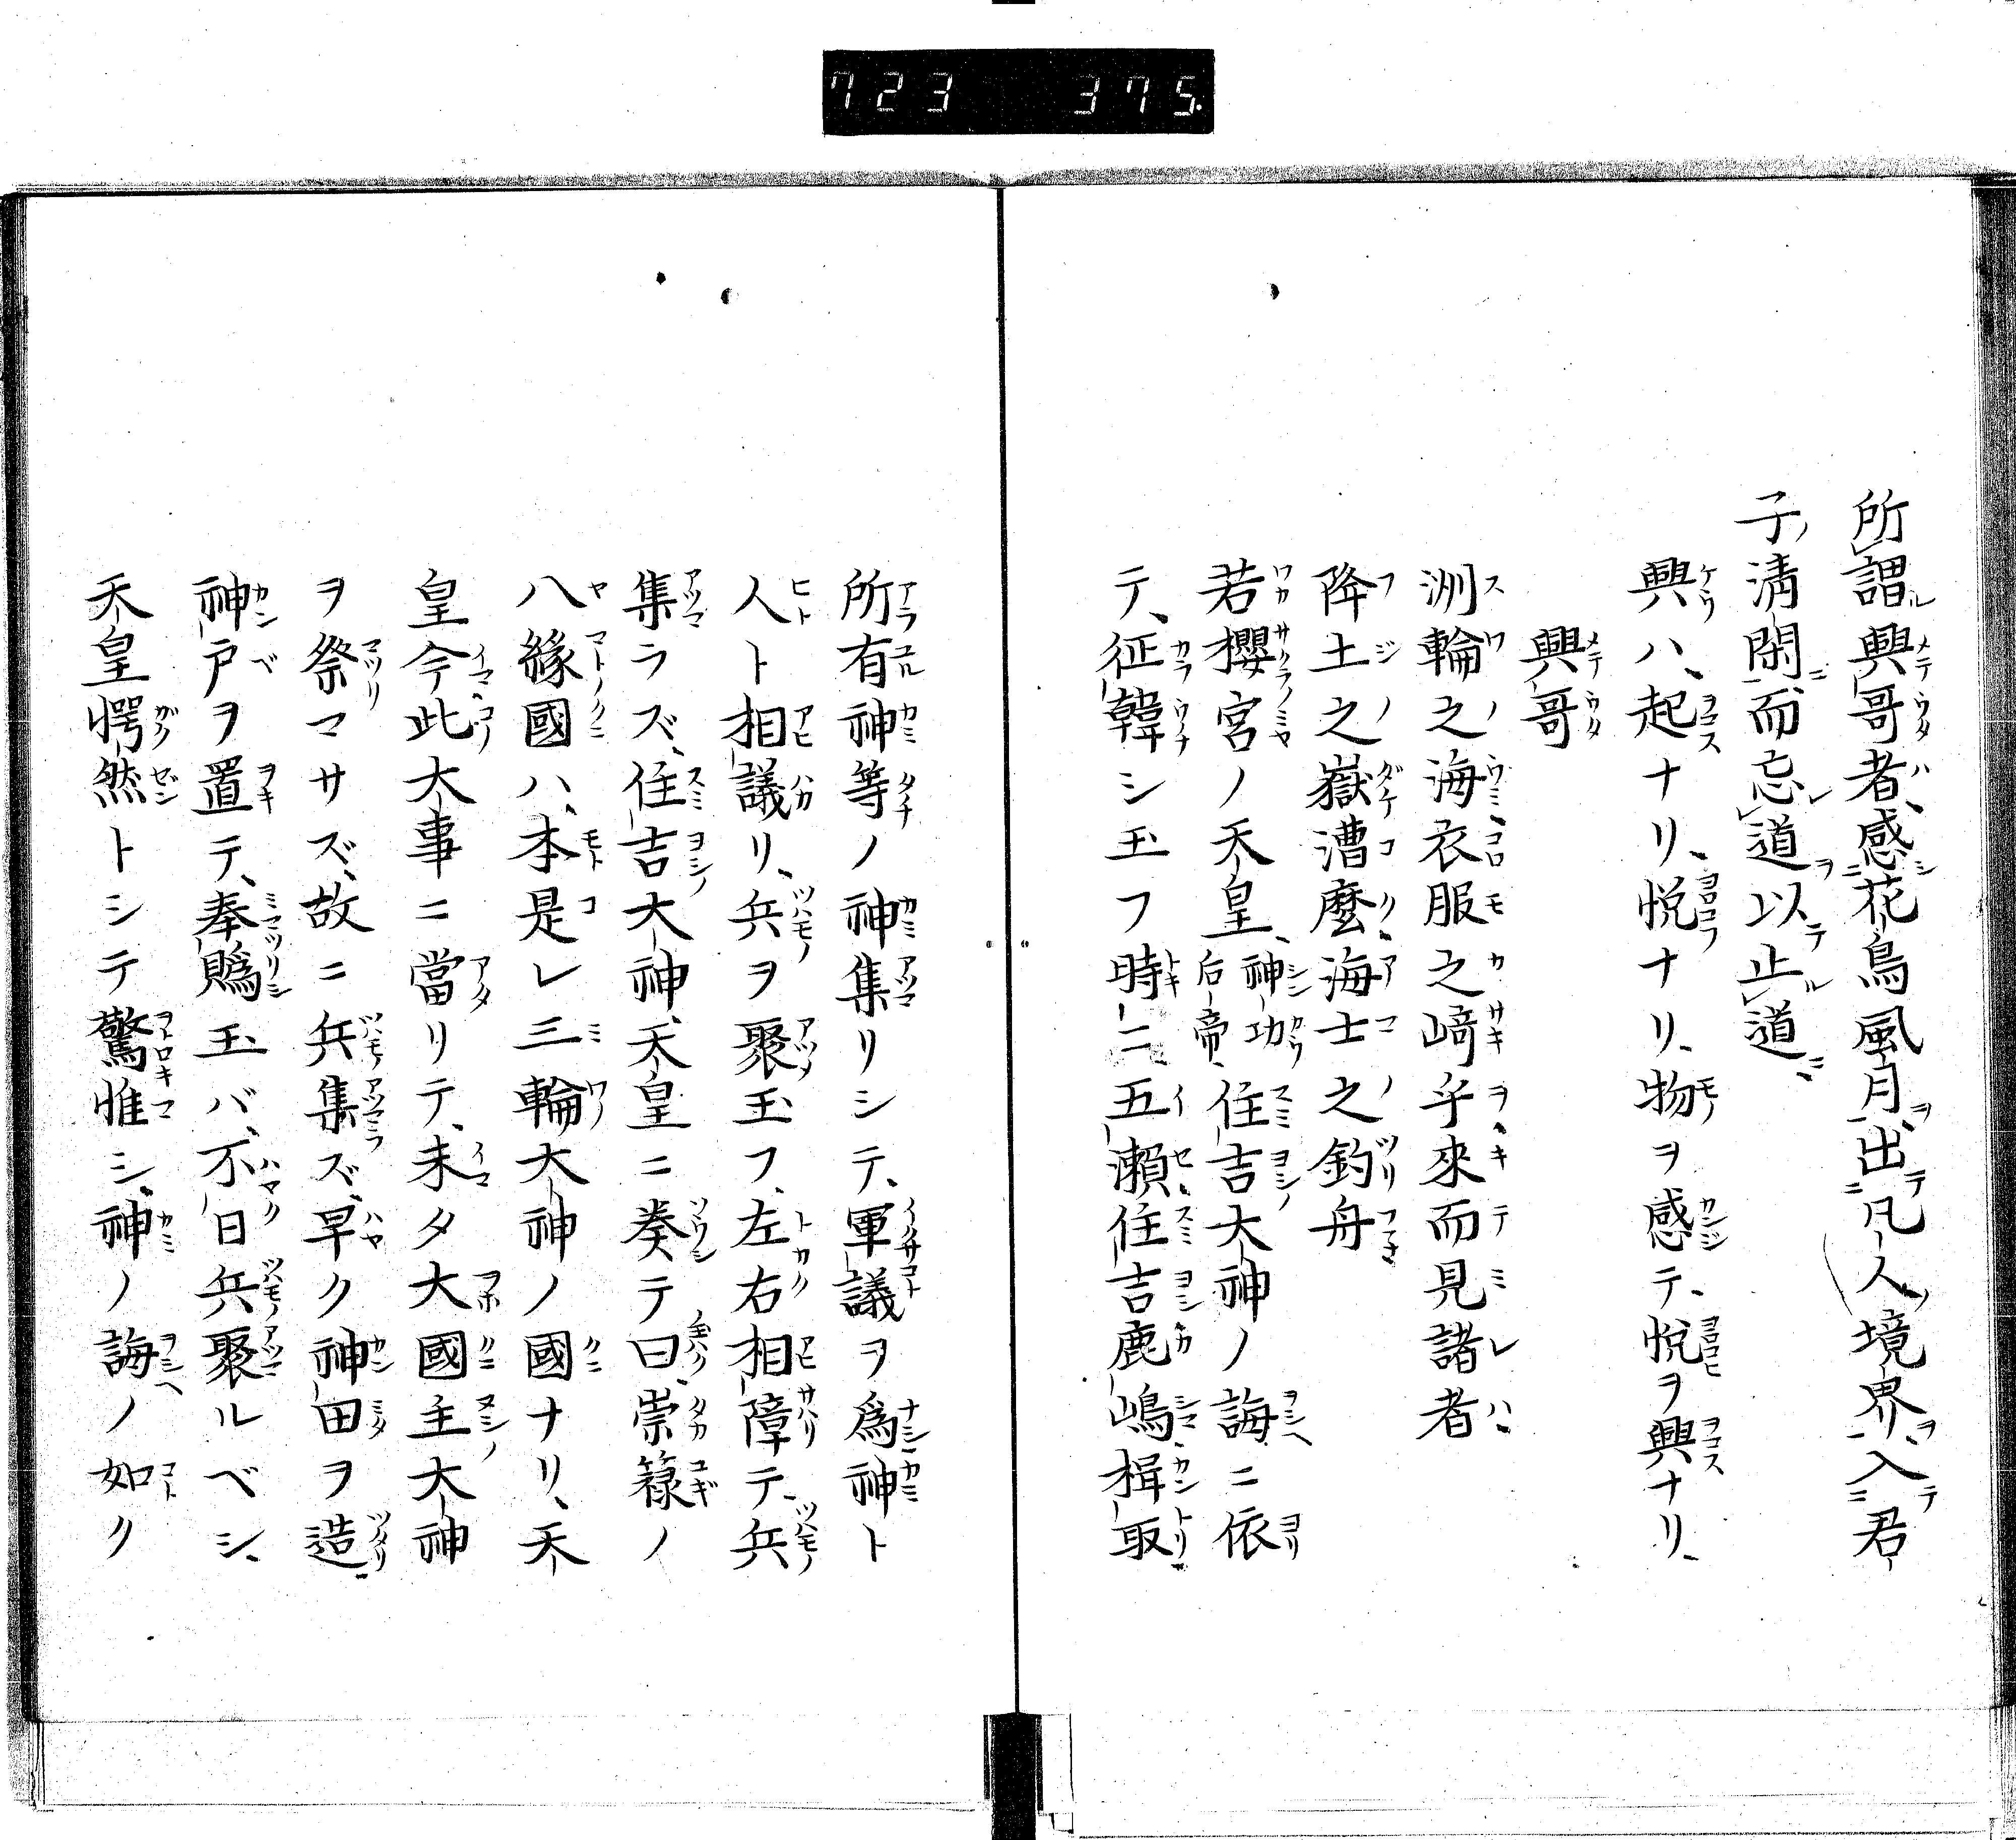 723 375
所謂興哥者、感花鳥風月、出凡人境界、入君
子清閑、而忘道以止道、
興ハ、起ナリ、悦ナリ、物ヲ感テ、悦ヲ興ナリ、
興哥
洲輪之海衣服之﨑乎來而見諸者
降土之嶽漕麼海士之釣舟
若櫻宮ノ天皇、神功后帝、住吉大神ノ誨ニ依
テ、征韓シ玉フ時ニ、五瀬住吉鹿嶋楫取
所有神等ノ神集リシテ、軍議ヲ爲神ト
人ト相議リ、兵ヲ聚玉フ、左右相障テ、兵
集ラズ、住吉大神、天皇ニ奏テ曰、崇籙ノ
八緣國ハ、本是レ三輪大神ノ國ナリ、天
皇今此大事ニ當リテ、未タ大國主大神
ヲ祭マサズ、故ニ兵集ズ、早ク神田ヲ造
神戸ヲ置テ、奉賜玉バ、不日兵聚ルベシ、
天皇愕然トシテ驚惟シ、神ノ誨ノ如ク